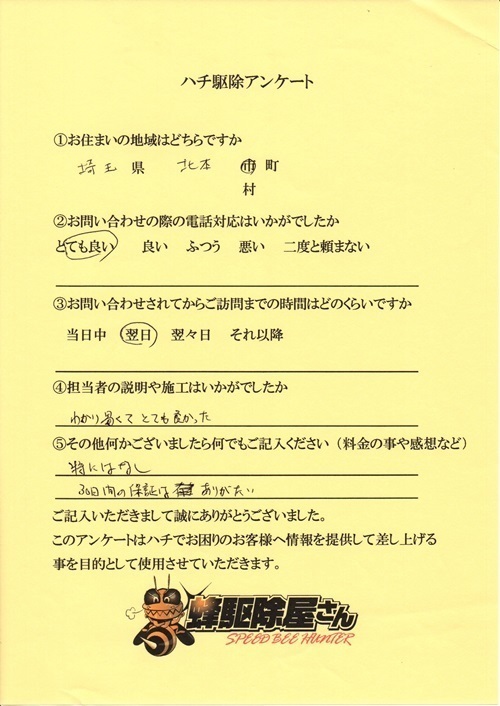 ハチ駆除アンケート
①お住まいの地域はどちらですか
埼玉 県 北本 市 町
村
②お問い合わせの際の電話対応はいかがでしたか
とても良い 良い ふつう 悪い 二度と頼まない
③お問い合わせされてからご訪問までの時間はどのくらいですか
当日中 翌日 翌々日 それ以降
④担当者の説明や施工はいかがでしたか
わかり易くてとても良かった
⑤その他何かございましたら何でもご記入ください(料金の事や感想など)
特にはなし
30日間の保証は ありがたい
ご記入いただきまして誠にありがとうございました。
このアンケートはハチでお困りのお客様へ情報を提供して差し上げる
事を目的として使用させていただきます。
蜂駆除屋さん
SPEED BEE HUNTER